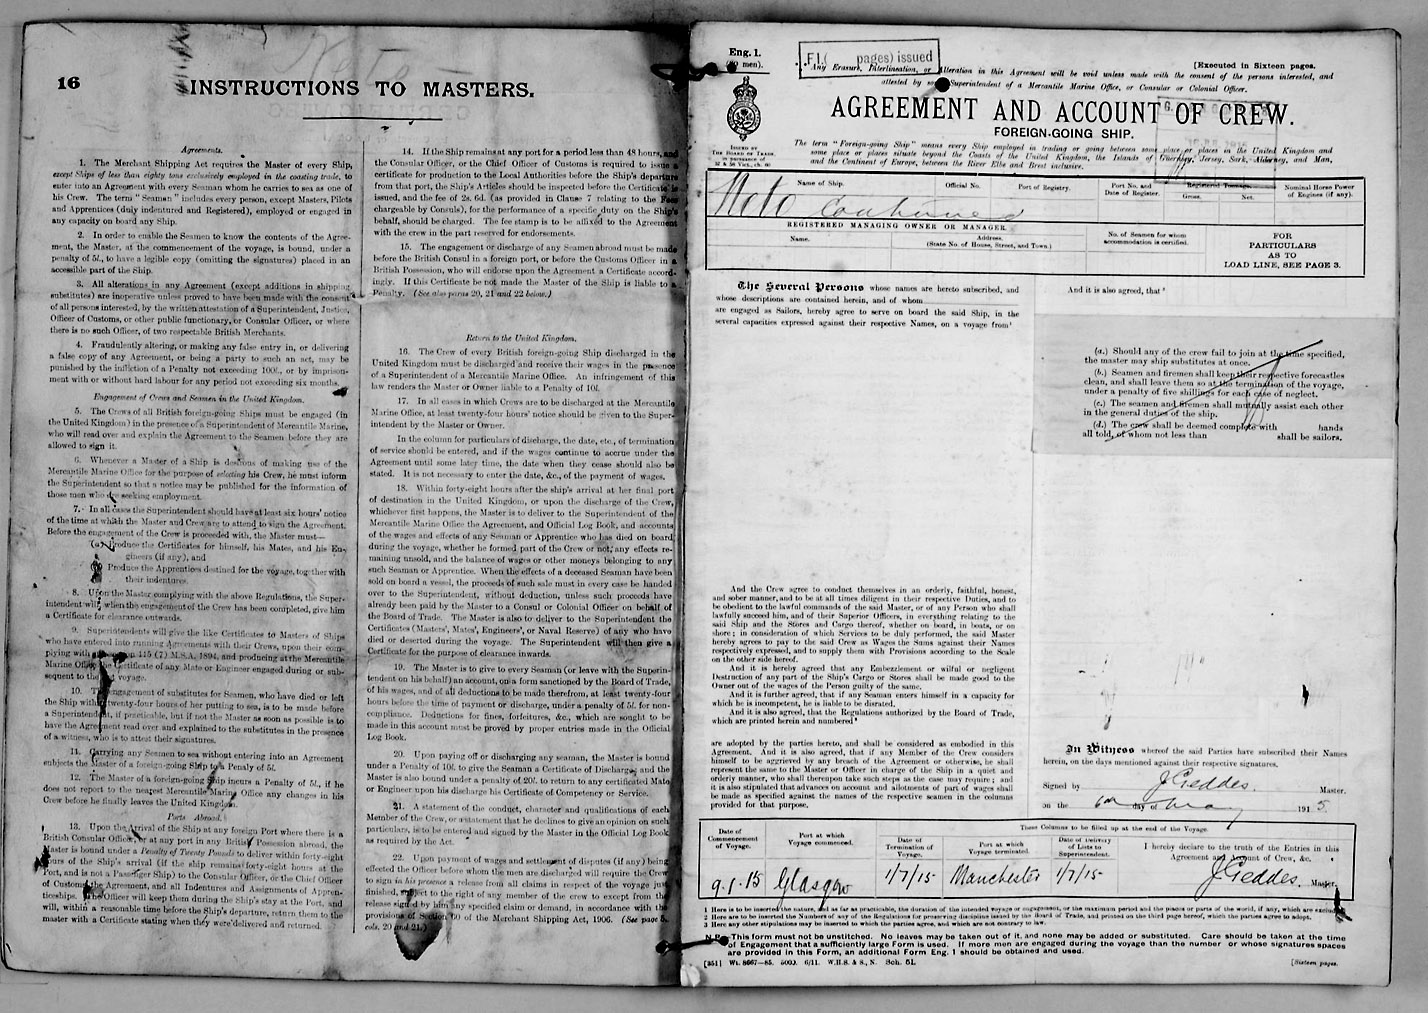 16
INSTRUCTIONS TO MASTERS.
Agreements.
1. The Merchant Shipping Act requires the Master of every Ship,
except Ships of less than eighty tons exclusively employed in the coasting trade, to
enter into an Agreement with every Seaman whom he carries to sea as one of
his Crew. The term "Seaman" includes every person, except Masters, Pilots
and Apprentices (duly indentured and Registered), employed or engaged in
any capacity on board any Ship.
2. In order to enable the Seamen to know the contents of the Agree-
ment, the Master, at the commencement of the voyage, is bound, under a
penalty of 5l., to have a legible copy (omitting the signatures) placed in an
accessible part of the Ship.
3. All alterations in any Agreement (except additions in shipping
substitutes) are inoperative unless proved to have been made with the consent
of all persons interested, by the written attestation of a Superintendent, Justice,
Officer of Customs, or other public functionary, or Consular Officer, or where
there is no such Officer, of two respectable British Merchants.
4. Fraudulently altering, or making any false entry in, or delivering
a false copy of any Agreement, or being a party to such an act, may be
punished by the infliction of a Penalty not exceeding 100l., or by imprison-
ment with or without hard labour for any period not exceeding six months.
Engagement of Crews and Seamen in the United Kingdom.
5. The Crews of all British foreign-going Ships must be engaged (in
the United Kingdom) in the presence of a Superintendent of Mercantile Marine,
who will read over and explain the Agreement to the Seamen before they are
allowed to sign it.
6. Whenever a Master of a Ship is desirous of making use of the
Mercantile Marine Office for the purpose of selecting his Crew, he must inform
the Superintendent so that a notice may be published for the information of
those men who are seeking employment.
7. In all cases the Superintendent should have at least six hours' notice
of the time at which the Master and Crew are to attend to sign the Agreement.
Before the engagement of the Crew is proceeded with, the Master must—
(a) Produce the Certificates for himself, his Mates, and his En-
gineers (if any), and
Produce the Apprentices destined for the voyage, together with
their indentures.
8. Upon the Master complying with the above Regulations, the Super-
intendent will, when the engagement of the Crew has been completed, give him
a Certificate for clearance outwards.
9. Superintendents will give the like Certificates to Masters of Ships
who have entered into running Agreements with their Crews, upon their com-
plying with 115 (7) M.S.A. 1894, and producing at the Mercantile
Marine Office the Certificate of any Mate or Engineer engaged during or sub-
sequent to the voyage.
10. The engagement of substitutes for Seamen, who have died or left
the Ship within twenty-four hours of her putting to sea, is to be made before
a Superintendent, if practicable, but if not the Master as soon as possible is to
have the Agreement read over and explained to the substitutes in the presence
of a witness, who is to attest their signatures.
11. Carrying any Seamen to sea without entering into an Agreement
subjects the Master of a foreign-going Ship to a Penalty of 5l.
12. The Master of a foreign-going Ship incurs a Penalty of 5l., if he
does not report to the nearest Mercantile Marine Office any changes in his
Crew before he finally leaves the United Kingdom.
Ports Abroad.
13. Upon the Arrival of the Ship at any foreign Port where there is a
British Consular Officer, or at any port in any British Possession abroad, the
Master is bound under a Penalty of Twenty Pounds to deliver within forty-eight
hours of the Ship's arrival (if the ship remains forty-eight hours at the
Port, and is not a Passenger Ship) to the Consular Officer, or the Chief Officer
of Customs, the Agreement, and all Indentures and Assignments of Appren-
ticeships. The Officer will keep them during the Ship's stay at the Port, and
will, within a reasonable time before the Ship's departure, return them to the
master with a Certificate stating when they were delivered and returned.
14. If the Ship remains at any port for a period less than 48 hours, and
the Consular Officer, or the Chief Officer of Customs is required to issue a
certificate for production to the Local Authorities before the Ship's departure
from that port, the Ship's Articles should be inspected before the Certificate is
issued, and the fee of 2s. 6d. (as provided in Clause 7 relating to the Fees
chargeable by Consuls), for the performance of a specific duty on the Ship's
behalf, should be charged. The fee stamp is to be affixed to the Agreement
with the crew in the part reserved for endorsements.
15. The engagement or discharge of any Seamen abroad must be made
before the British Consul in a foreign port, or before the Customs Officer in a
British Possession, who will endorse upon the Agreement a Certificate accord-
ingly. If this Certificate be not made the Master of the Ship is liable to a
Penalty. (See also paras 20, 21 and 22 below.)
Return to the United Kingdom.
16. The Crew of every British foreign-going Ship discharged in the
United Kingdom must be discharged and receive their wages in the presence
of a Superintendent of a Mercantile Marine Office. An infringement of this
law renders the Master or Owner liable to a Penalty of 10l.
17. In all cases in which Crews are to be discharged at the Mercantile
Marine Office, at least twenty-four hours' notice should be given to the Super-
intendent by the Master or Owner.
In the column for particulars of discharge, the date, etc., of termination
of service should be entered, and if the wages continue to accrue under the
Agreement until some later time, the date when they cease should also be
stated. It is not necessary to enter the date, &c., of the payment of wages.
18. Within forty-eight hours after the ship's arrival at her final port
of destination in the United Kingdom, or upon the discharge of the Crew,
whichever first happens, the Master is to deliver to the Superintendent of the
Mercantile Marine Office the Agreement, and Official Log Book, and accounts
of the wages and effects of any Seaman or Apprentice who has died on board
during the voyage, whether he formed part of the Crew or not; any effects re-
maining unsold, and the balance of wages or other moneys belonging to any
such Seaman or Apprentice. When the effects of a deceased Seaman have been
sold on board a vessel, the proceeds of such sale must in every case be handed
over to the Superintendent, without deduction, unless such proceeds have
already been paid by the Master to a Consul or Colonial Officer on behalf of
the Board of Trade. The Master is also to deliver to the Superintendent the
Certificates (Masters', Mates', Engineers', or Naval Reserve) of any who have
died or deserted during the voyage. The Superintendent will then give a
Certificate for the purpose of clearance inwards.
19. The Master is to give to every Seaman (or leave with the Superin-
tendent on his behalf) an account, on a form sanctioned by the Board of Trade,
of his wages, and of all deductions to be made therefrom, at least twenty-four
hours before the time of payment or discharge, under a penalty of 5l. for non-
compliance. Deductions for fines, forfeitures, &c., which are sought to be
made in this account must be proved by proper entries made in the Official
Log Book.
20. Upon paying off or discharging any seaman, the Master is bound
under a Penalty of 10l. to give the Seaman a Certificate of Discharge; and the
Master is also bound under a penalty of 20l. to return to any certificated Mate
or Engineer upon his discharge his Certificate of Competency or Service.
21. A statement of the conduct, character and qualifications of each
Member of the Crew, or a statement that he declines to give an opinion on such
particulars, is to be entered and signed by the Master in the Official Log Book
as required by the Act.
22. Upon payment of wages and settlement of disputes (if any) being
effected the Officer before whom the men are discharged will require the Crew
to sign in his presence a release from all claims in respect of the voyage just
finished, subject to the right of any member of the crew to except from the
release signed by him any specified claim or demand, in accordance with the
provisions of Section 60 of the Merchant Shipping Act, 1906. (See page 5,
cols. 20 and 21.)
Eng. 1.
men).
F1.( pages) issued
[Executed in Sixteen pages.
Any Erasure, Interlineation, or Alteration in this Agreement will be void unless made with the consent of the persons interested, and
attested by some Superintendent of a Mercantile Marine Office, or Consular or Colonial Officer.
AGREEMENT AND ACCOUNT OF CREW.
FOREIGN-GOING SHIP.
ISSUED BY
THE BOARD OF TRADE,
in pursuance of
The term "Foreign-going Ship" means every Ship employed in trading or going between some place or places in the United Kingdom and
some place or places situate beyond the Coasts of the United Kingdom, the Islands of Guernsey, Jersey, Sark, Alderney, and Man,
and the Continent of Europe, between the River Elbe and Brest inclusive.
Name of Ship. Official No. Port of Registry. Port No. and Date of Register. Registered Tonnage. Gross. Net. Nominal Horse Power of Engines (if any).
Neto continued
REGISTERED MANAGING OWNER OR MANAGER.
Name. Address. (State No. of House, Street, and Town.) No. of Seamen for whom accommodation is certified.
FOR
PARTICULARS
AS TO
LOAD LINE, SEE PAGE 3.
The Several Persons whose names are hereto subscribed, and
whose descriptions are contained herein, and of whom
are engaged as Sailors, hereby agree to serve on board the said Ship, in the
several capacities expressed against their respective Names, on a voyage from¹
And the Crew agree to conduct themselves in an orderly, faithful, honest,
and sober manner, and to be at all times diligent in their respective Duties, and to
be obedient to the lawful commands of the said Master, or of any Person who shall
lawfully succeed him, and of their Superior Officers, in everything relating to the
said Ship and the Stores and Cargo thereof, whether on board, in boats, or on
shore; in consideration of which Services to be duly performed, the said Master
hereby agrees to pay to the said Crew as Wages the Sums against their Names
respectively expressed, and to supply them with Provisions according to the Scale
on the other side hereof.
And it is hereby agreed that any Embezzlement or wilful or negligent
Destruction of any part of the Ship's Cargo or Stores shall be made good to the
Owner out of the wages of the Person guilty of the same.
And it is further agreed, that if any Seaman enters himself in a capacity for
which he is incompetent, he is liable to be disrated.
And it is also agreed, that the Regulations authorized by the Board of Trade,
which are printed herein and numbered²
are adopted by the parties hereto, and shall be considered as embodied in this
Agreement. And it is also agreed, that if any Member of the Crew considers
himself to be aggrieved by any breach of the Agreement or otherwise, he shall
represent the same to the Master or Officer in charge of the Ship in a quiet and
orderly manner, who shall thereupon take such steps as the case may require; and
it is also stipulated that advances on account and allotments of part of wages shall
be made as specified against the names of the respective seamen in the columns
provided for that purpose.
And it is also agreed, that³
(a.) Should any of the crew fail to join at the time specified,
the master may ship substitutes at once.
(b.) Seamen and firemen shall keep their respective forecastles
clean, and shall leave them so at the termination of the voyage,
under a penalty of five shillings for each case of neglect.
(c.) The seamen and firemen shall mutually assist each other
in the general duties of the ship.
(d.) The crew shall be deemed complete with hands
all told, of whom not less than shall be sailors.
In Witness whereof the said Parties have subscribed their Names
herein, on the days mentioned against their respective signatures.
Signed by J Geddes. Master.
on the 6th day of May 1915.
Date of Commencement of Voyage. Port at which Voyage commenced.
These Columns to be filled up at the end of the Voyage.
Date of Termination of Voyage. Port at which Voyage terminated. Date of Delivery of Lists to Superintendent.
I hereby declare to the truth of the Entries in this
Agreement and Account of Crew, &c.
9.1.15 Glasgow 1/7/15 Manchester 1/7/15 J Geddes. Master.
1 Here is to be inserted the nature, and as far as practicable, the duration of the intended voyage or engagement, or the maximum period and the places or parts of the world, if any, which are excluded.
2 Here are to be inserted the Numbers of any of the Regulations for preserving discipline issued by the Board of Trade, and printed on the third page hereof, which the parties agree to adopt.
3 Here any other stipulations may be inserted to which the parties agree, and which are not contrary to law.
This form must not be unstitched. No leaves may be taken out of it, and none may be added or substituted. Care should be taken at the time
of Engagement that a sufficiently large Form is used. If more men are engaged during the voyage than the number or whose signatures spaces
are provided in this Form, an additional Form Eng. 1 should be obtained and used.
[351] Wt. 8667—85. 5000. 6/11. W.H.S. & S., N. Sch. 51.
[Sixteen pages.